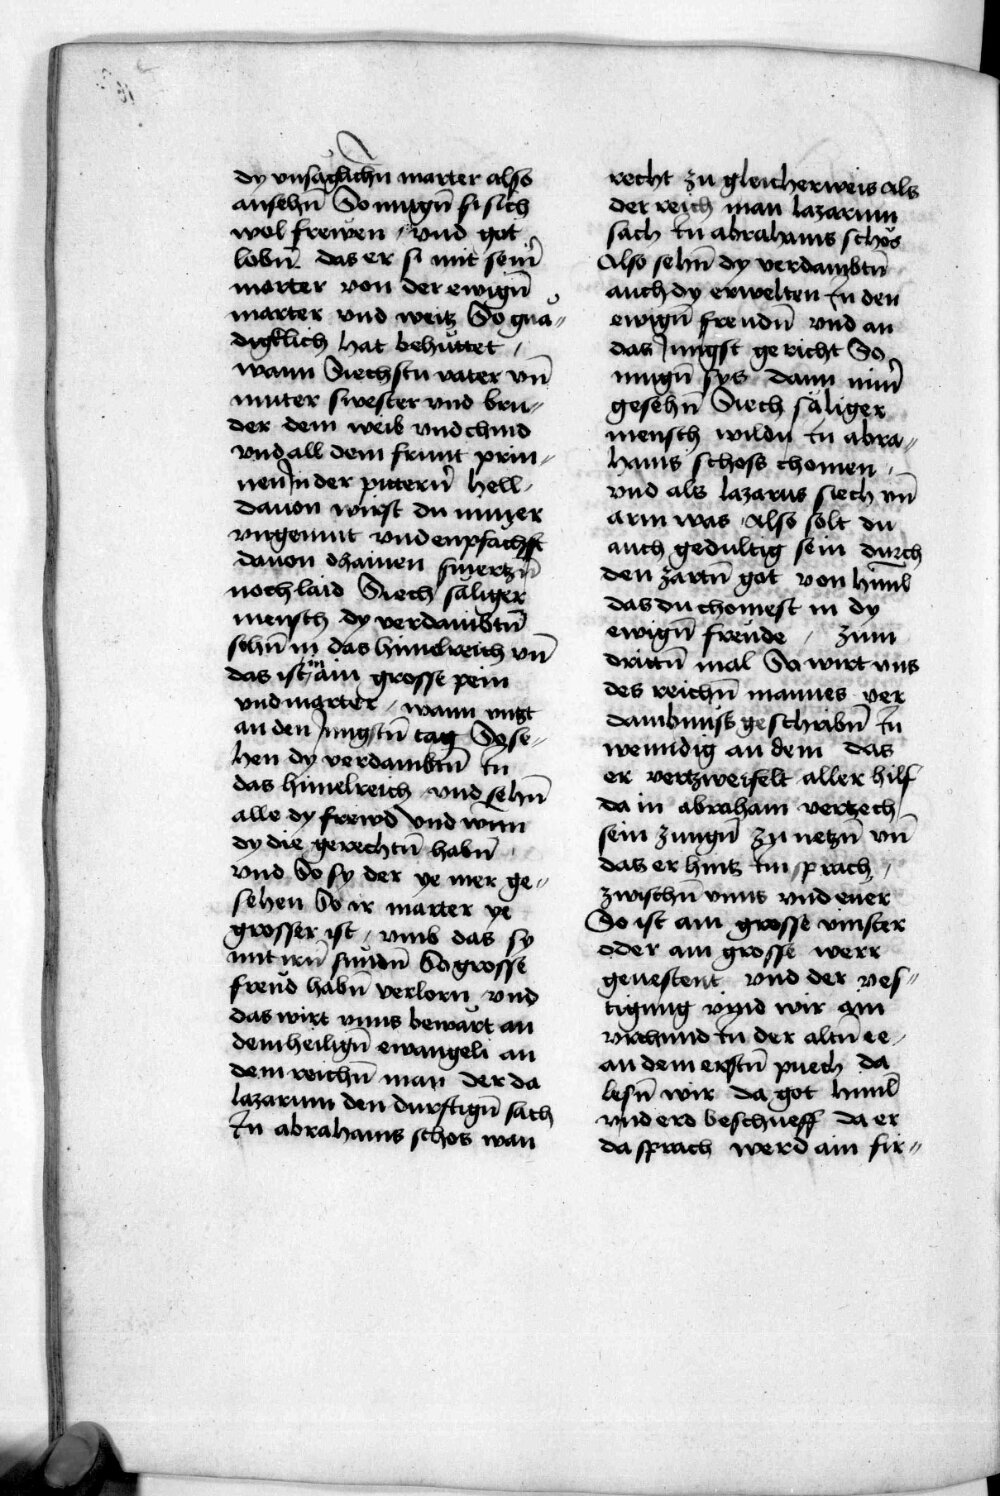 dy vnsäglichn̄ marter also
ansehn̄ So mugn̄ si sich
wol frewen / vnd got
lobn̄ das er si mit sein̄
marter von der ewign̄
marter vnd weitz So gnä〃
digklich hat behüttet /
wann Siechstu vater vn̄
muter swester vnd bru〃
der dem weib vnd chind
vnd all dem frunt prin〃
nen In der pittern̄ hell /
dauon wirst du nuner
vngemut vnd enpfachst
dauon chainen smertzn̄
noch laid Siech säliger
mensch dy verdambtn̄
sehn̄ in das himelreich vn̄
das ist im ain grosse pein
vnd marter / wann vngt
an den Jungstn̄ tag So se〃
hen dy verdambtn̄ In
das himelreich vnd sehn̄
alle dy frewd vnd wun̄
dy die gerechtn̄ habn̄
vnd So sy der ye mer ge〃
sehen So ir marter ye
grosser ist / vmb das sy
mit irn̄ sundn̄ So grosse
freud habn̄ verlorn vnd
das wirt vnns bewärt an
dem heilign̄ ewangeli an
dem reichn̄ man der da
lazarum den durftign̄ sach
In abrahams schos wan
recht zu gleicherweis als
der reich man lazarum
sach In abrahams schös
Also sehn̄ dy verdambtn̄
auch dy erwelten In den
ewign̄ freudn̄ vnd an
das Jungst gericht So
mugn̄ sys dann nim̄
gesehn̄ Siech säliger
mensch wildu In abra〃
hams schoss chomen /
vnd als lazarus siech vn̄
arm was / Also solt du
auch gedultig sein durch
den zartn̄ got von himl
das du chomest in dy
ewign̄ freude / zum
drittn̄ mal So wirt vns
des reichn̄ mannes ver
dambnuss geschribn̄ In
wendig an dem das
er vertzweifelt aller hilf
da in abraham vertzech
sein zungn̄ zu netzn̄ vn̄
das er hintz im sprach /
zwischn̄ vnns vnd euer
So ist ain grosse vinster
oder ain grosse werr
geuestent vnd der ves〃
tigung vind wir ain
vrchund In der altn̄ ee /
an dem erstn̄ puech da
lesn̄ wir da got himl
vnd erd beschueff da er
da sprach werd ain fir〃